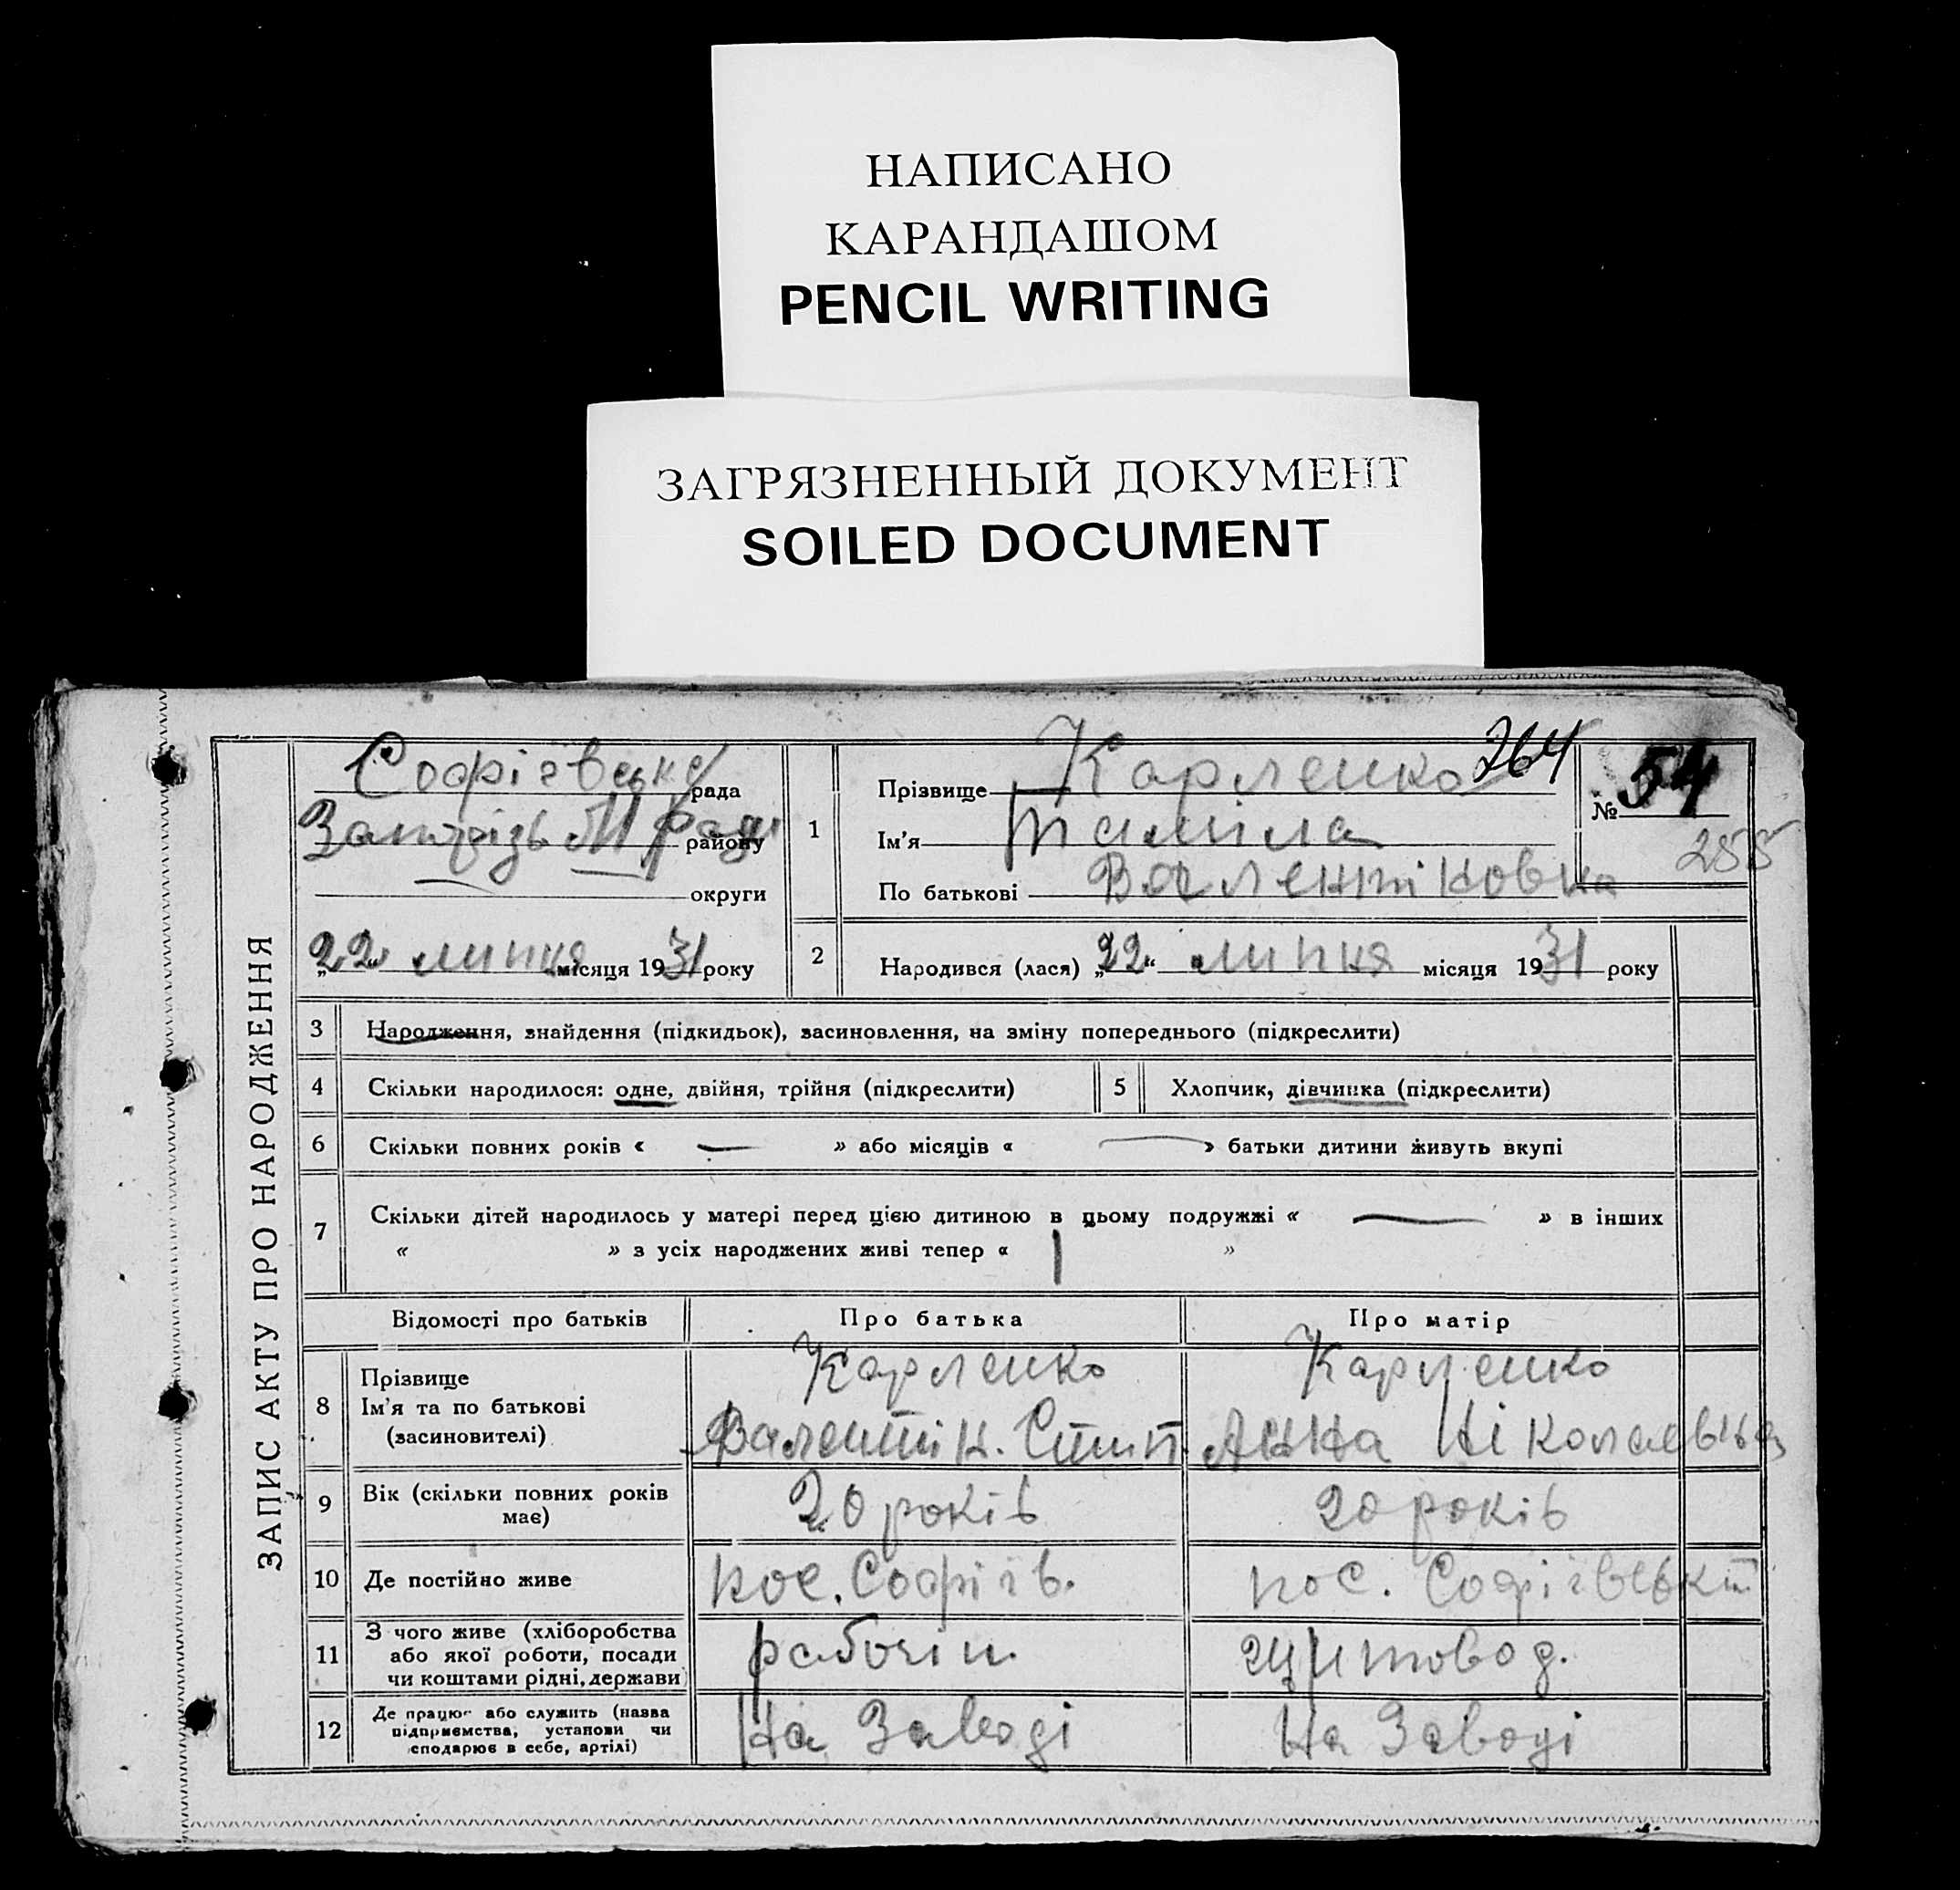 НАПИСАНО
КАРАНДАШОМ
PENCIL WRITING
ЗАГРЯЗНЕННЫЙ ДОКУМЕНТ
SOILED DOCUMENT
ЗАПИС АКТУ ПРО НАРОДЖЕННЯ
Софіівське рада
району
округи
„22“ липня місяця 1931 року
1
Прізвище Карленко 264
Ім'я Таміла
По батькові Валентіковна
№ 54
255
2 Народився (лася) „22“ липня місяця 1931 року
3 Народження, знайдення (підкидьок), засиновлення, на зміну попереднього (підкреслити)
4 Скільки народилося: одне, двійня, трійня (підкреслити)
5 Хлопчик, дівчинка (підкреслити)
6 Скільки повних років « — » або місяців « — » батьки дитини живуть вкупі
7 Скільки дітей народилось у матері перед цією дитиною в цьому подружжі « — » в інших
« » з усіх народжених живі тепер « 1 »
Відомості про батьків Про батька Про матір
8 Прізвище
Ім'я та по батькові
(засиновителі)
Карленко
Валентік.
Карленко
Анна Ніколаевна
9 Вік (скільки повних років
має)
20 років
20 років
10 Де постійно живе
пос. Софіів.
пос.
11 З чого живе (хліборобства
або якої роботи, посади
чи коштами рідні, держави
рабочіи.
12 Де працює або служить (назва
підприємства, установи чи
сподарює в себе, артілі)
На Заводі
На Заводі